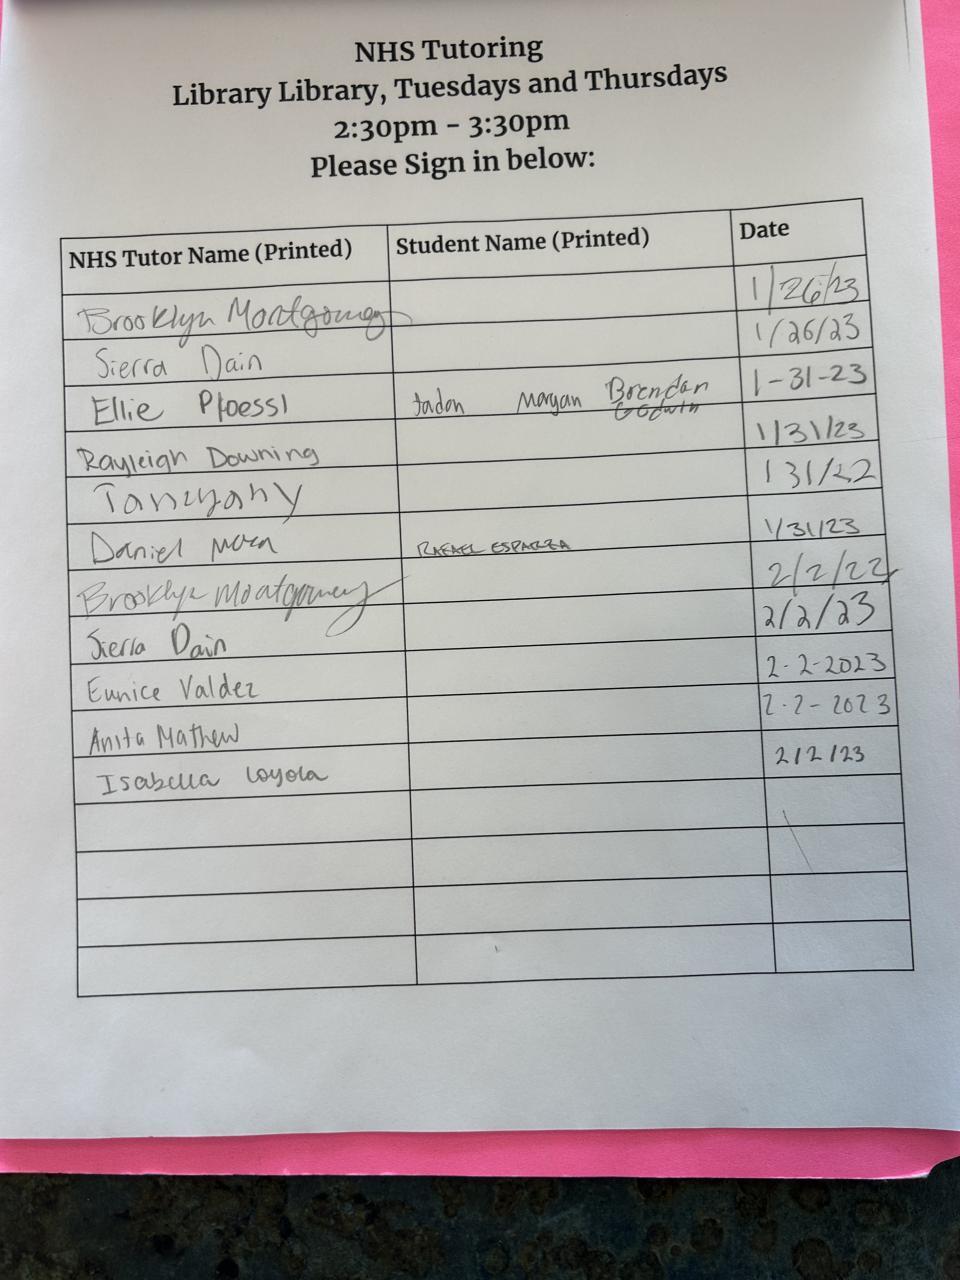 NHS Tutoring
Library Library, Tuesdays and Thursdays
2:30pm - 3:30pm
Please Sign in below:
NHS Tutor Name (Printed) Student Name (Printed) Date
Brooklyn Montgomey 1/26/23
Sierra Dain 1/26/23
Ellie Ploessl Jadon Morgan Brendan Godwin 1-31-23
Rayleigh Downing 1/31/23
1 31/22
Daniel RAFAEL ESPARZA 1/31/23
Brooklyn Montgomey 2/2/22
Sierra Dain 2/2/23
Eunice Valdez 2-2-2023
Anita Mathew 2-2-2023
Isabella Loyola 2/2/23